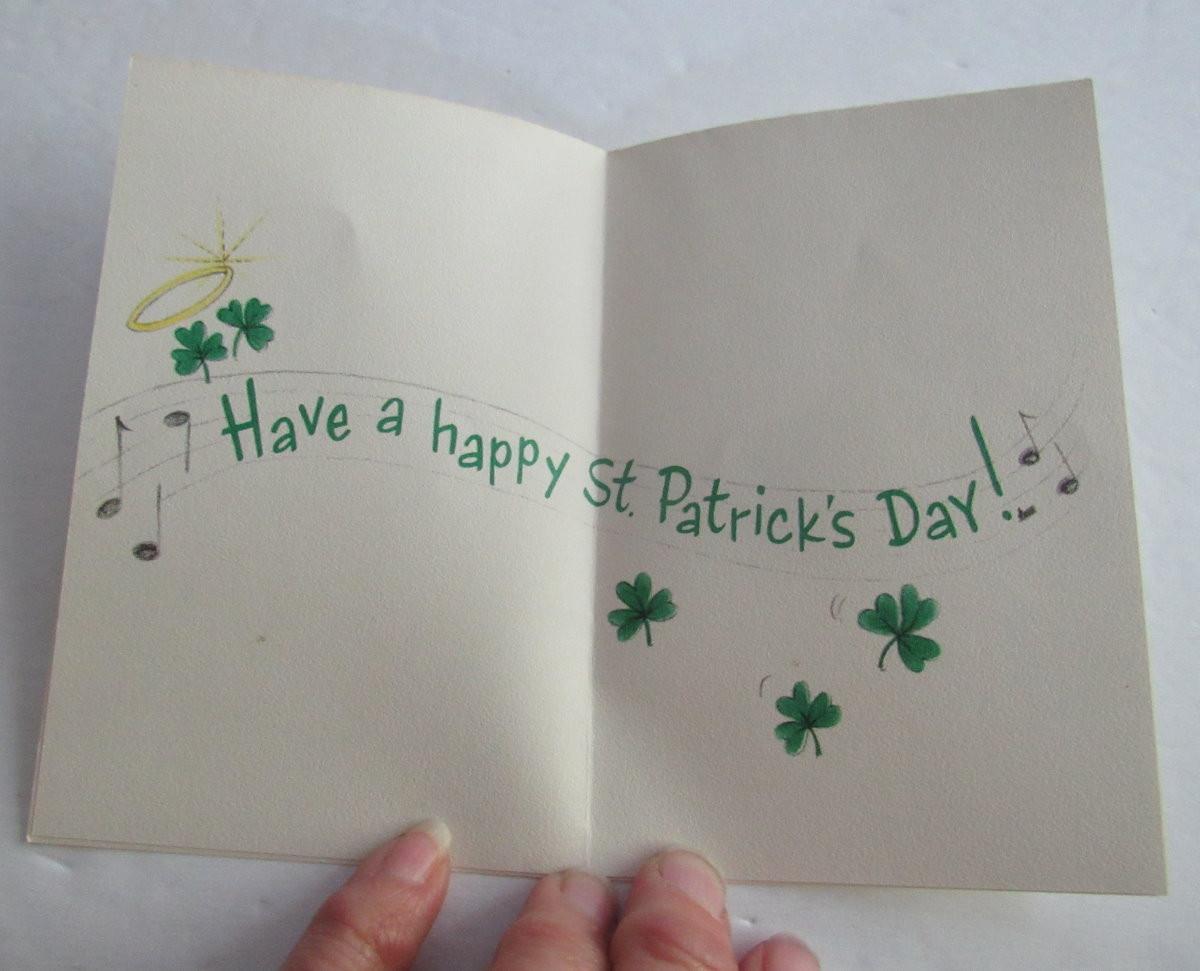 Have a happy St. Patrick's Day!